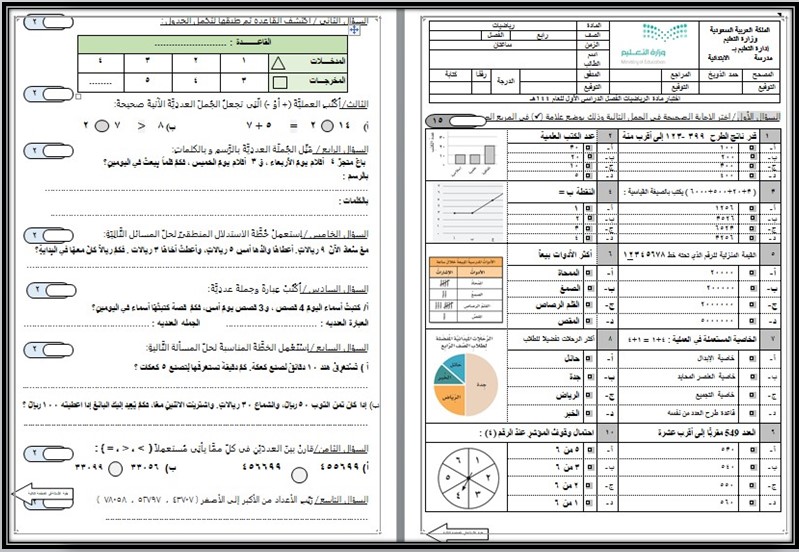 المملكة العربية السعودية
وزارة التعليم
إدارة التعليم بـ
مدرسة الابتدائية
وزارة التعليم
Ministry of Education
المادة رياضيات
الصف رابع الفصل الأول
الزمن ساعتان
اسم الطالب
المصحح حمد الذويخ المراجع المدقق الدرجة رقمًا كتابة
التوقيع التوقيع التوقيع
اختبار مادة الرياضيات الفصل الدراسي الأول للعام ١٤٤هـ
السؤال الأول / اختر الإجابة الصحيحة في الجمل التالية وذلك بوضع علامة (✓) في المربع
١٥
١ قدر ناتج الطرح ٣٩٩ -١٢٣ إلى أقرب مئة
أ- ١٠٠
ب- ٢٠٠
ج- ٣٠٠
د- ٤٠٠
٢ عدد الكتب العلمية
أ- ٣٠
ب- ٢٠
ج- ١٠
د- ٥
٣ (٣+٢٠+٥٠٠+٦٠٠٠) يكتب بالصيغة القياسية :
أ- ١٢٥٦
ب- ٣٥٢٦
ج- ٦٥٢٣
د- ٣٢٥٦
٤ النقطة ب =
أ- ١
ب- ٢
ج- ٣
د- ٤
٥ القيمة المنزلية للرقم الذي تحته خط ١٢٣٤٥٦٧٨
أ- ٢٠٠٠٠
ب- ٢٠٠٠٠٠
ج- ٢٠٠٠٠٠٠
د- ٥٠٠٠٠٠٠
٦ أكثر الأدوات بيعاً
أ- الممحاة
ب- الصمغ
ج- القلم الرصاص
د- المقص
٧ الخاصية المستعملة في العملية : ٤+١ = ١+٤
أ- خاصية الإبدال
ب- خاصية العنصر المحايد
ج- خاصية التجميع
د- قاعدة طرح العدد من نفسه
٨ أكثر الرحلات تفضيلاً للطلاب
أ- حائل
ب- جدة
ج- الرياض
د- الخبر
الرحلات الميدانية المفضلة
لطلاب الصف الرابع
حائل
الخبر
جدة
الرياض
٦ العدد 549 مقربًا إلى أقرب عشرة
أ- ٥٣٠
ب- ٥٤٠
ج- ٥٥٠
د- ٥٦٠
١٠ احتمال وقوف المؤشر عند الرقم (٤) :
أ- ٥ من ٦
ب- ٣ من ٦
ج- ١ من ٦
د- ٢ من ٦
السؤال الثاني / اكتشف القاعدة ثم طبقها لتكمل الجدول:
٢
القاعدة :
المدخلات ١ ٢ ٣ ٤
المخرجات ٣ ٤ ٥
الثالث/ أكتب العملية (+ أوْ -) الّتِي تجعلُ الجُملَ العدديّةَ الآتيةَ صحيحة:
٢
أ) ١٤ ٢ = ٥ + ٧ ب) ٨ < ٧ ٢
السؤال الرابع / مَثِّل الجُملَة العدديةَ بالرَّسم و بالكلمات:
٢
باعَ متجرٌ ٤ أقلامٍ يوم الأربعاء ، وَ ٣ أقلام يوم الخميس ، فكمْ قلماً بِيعتْ في اليومينِ؟
بالرسم :
بالكلمات :
السؤال الخامس / إستعملْ خُطَّةَ الاستدلال المنطقيِّ لحلِّ المسائل التَّاليَّة:
٢
معَ سُعادَ الآنَ ٩ ريالاتٍ. أعطاهَا والدُها أمسِ ٥ ريالاتٍ، وأعطتْ أخاهَا ٣ ريالات . فكمْ ريالاً كانَ معهَا في البِدايةِ؟
السؤال السادس / أُكتُبْ عبارةً وجملةً عدديَّة:
٢
أ/ كتبتُ أسماء اليوم 4 قصص ، و3 قصص يوم أمس، فكمْ قصة كتبتُها أسماء في اليومينِ؟
العبارة العدديه : الجمله العدديه :
السؤال السابع / إستعْمِل الخطَّةَ المناسبةَ لحلِّ المسألة التَّاليَة:
٢
أ ) تَستغرقُ هند ١٠ دقائقَ لصنعِ كعكةٍ. كمْ دقيقةً تستغرقُها لِتصنعَ ٥ كعكات ؟
ب) إذا كان ثمن التوب ٥٠ ريالاً، والشماغ ٣٠ ريالاتٍ. واشتريتَ الاثنينِ معًا، فكمْ يُعيدُ إليك البائعُ إذا أعطيته ١٠٠ ريالٌ ؟
السؤال الثامن/ قارنْ بينَ العدديْنِ في كلٍّ ممَّا يأتِي مُستعملاً ( > ، < ، = ) :
٢
أ ) ٤٥٥٦٩٩ ٤٥٦٦٩٩ ب) ٣٣٠٥٦ ٣٣٠٩٩
السؤال التاسع/ رَتِّب الأعدادَ من الأكبر إلى الأصغر ( ٤٣٧٠٧ ، ٥٢٧٩٧ ، ٧٨٠٥٨ )